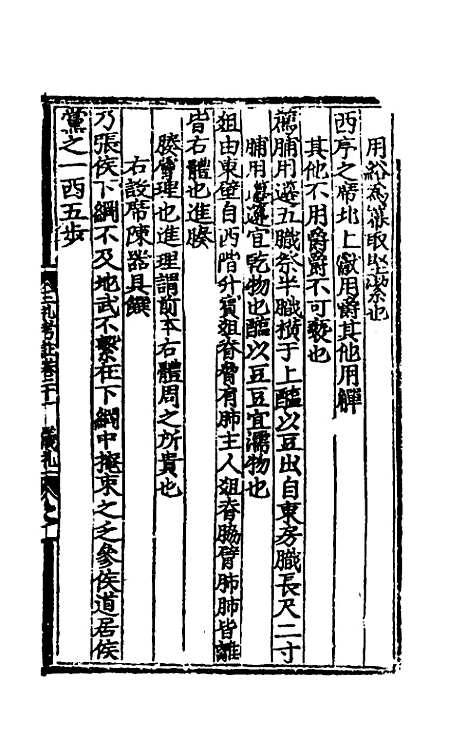 用綌為冪取堅潔也
西序之席北上獻用爵其他用觶
其他不用爵爵不可褻也
薦脯用籩五膱祭半膱橫于上醢以豆出自東房膱長尺二寸
脯用籩籩宜乾物也醢以豆豆宜濡物也
俎由東壁自西階升賓俎脊脅肩肺主人俎脊脇臂肺肺皆離
皆右體也進腠
腠膚理也進理謂前其本右體周之所貴也
右設席陳器具饌
乃張侯下綱不及地武不繫左下綱中掩束之乏參侯道居侯
黨之一西五步
三礼考註卷二十一 儀礼